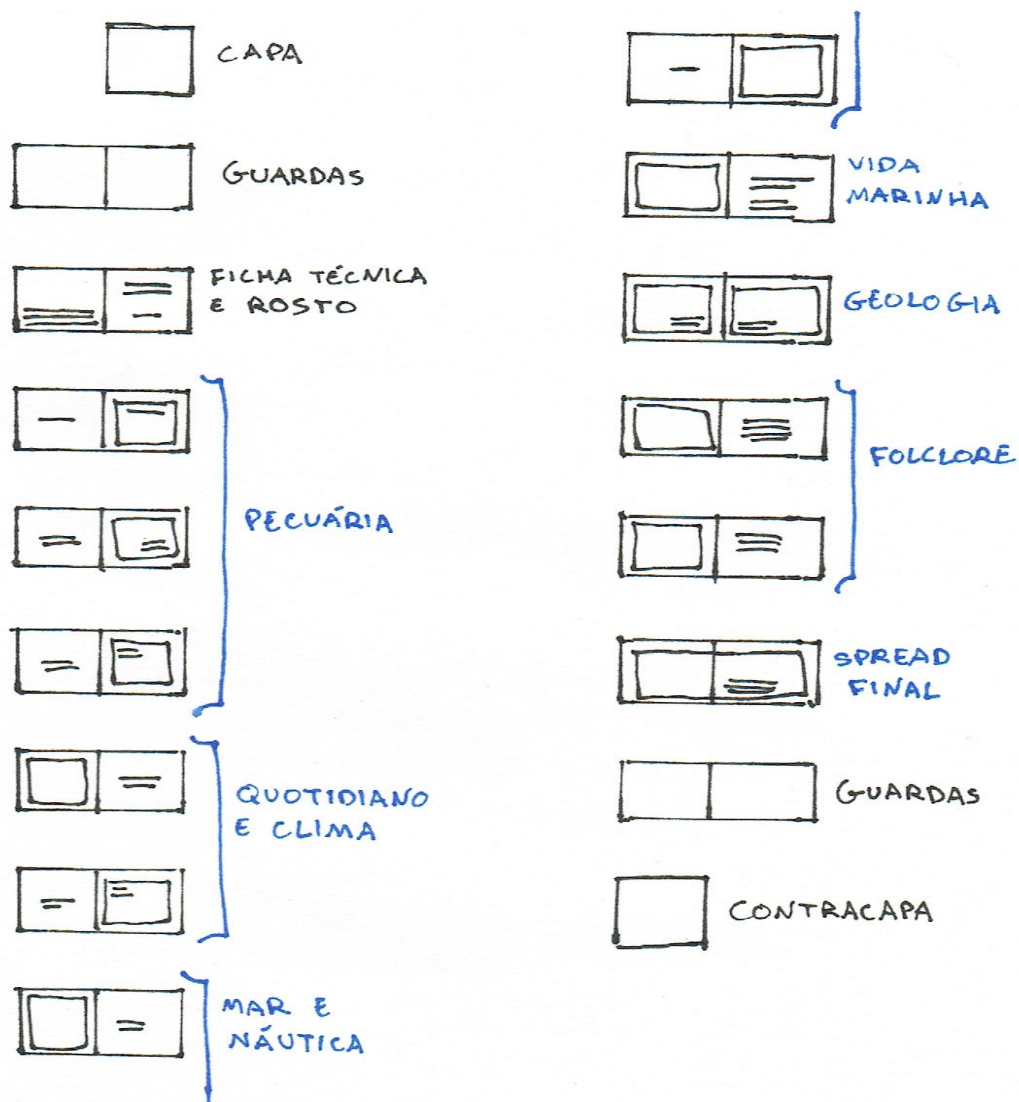 CAPA
GUARDAS
FICHA TÉCNICA
E ROSTO
PECUÁRIA
QUOTIDIANO
E CLIMA
MAR E
NÁUTICA
VIDA
MARINHA
GEOLOGIA
FOLCLORE
SPREAD
FINAL
GUARDAS
CONTRACAPA